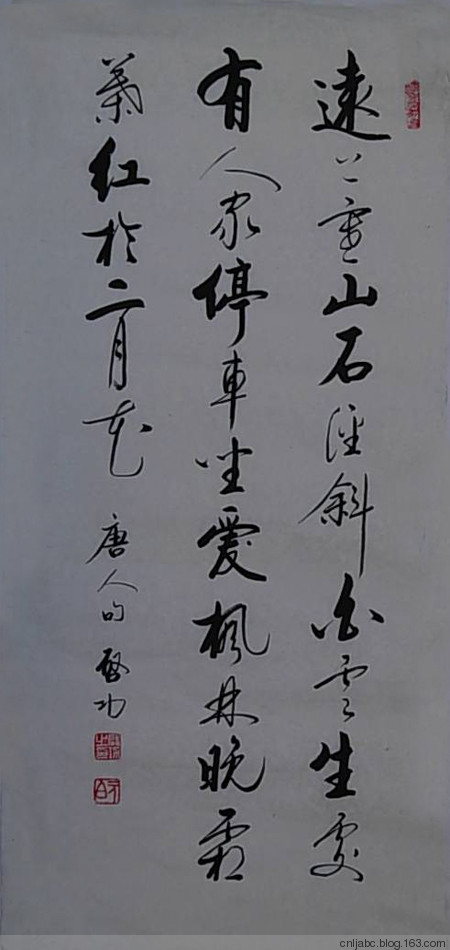 遠上寒山石徑斜白雲生處
有人家停車坐愛楓林晚霜
葉紅於二月花 唐人句 啟功
cnljabc.blog.163.com